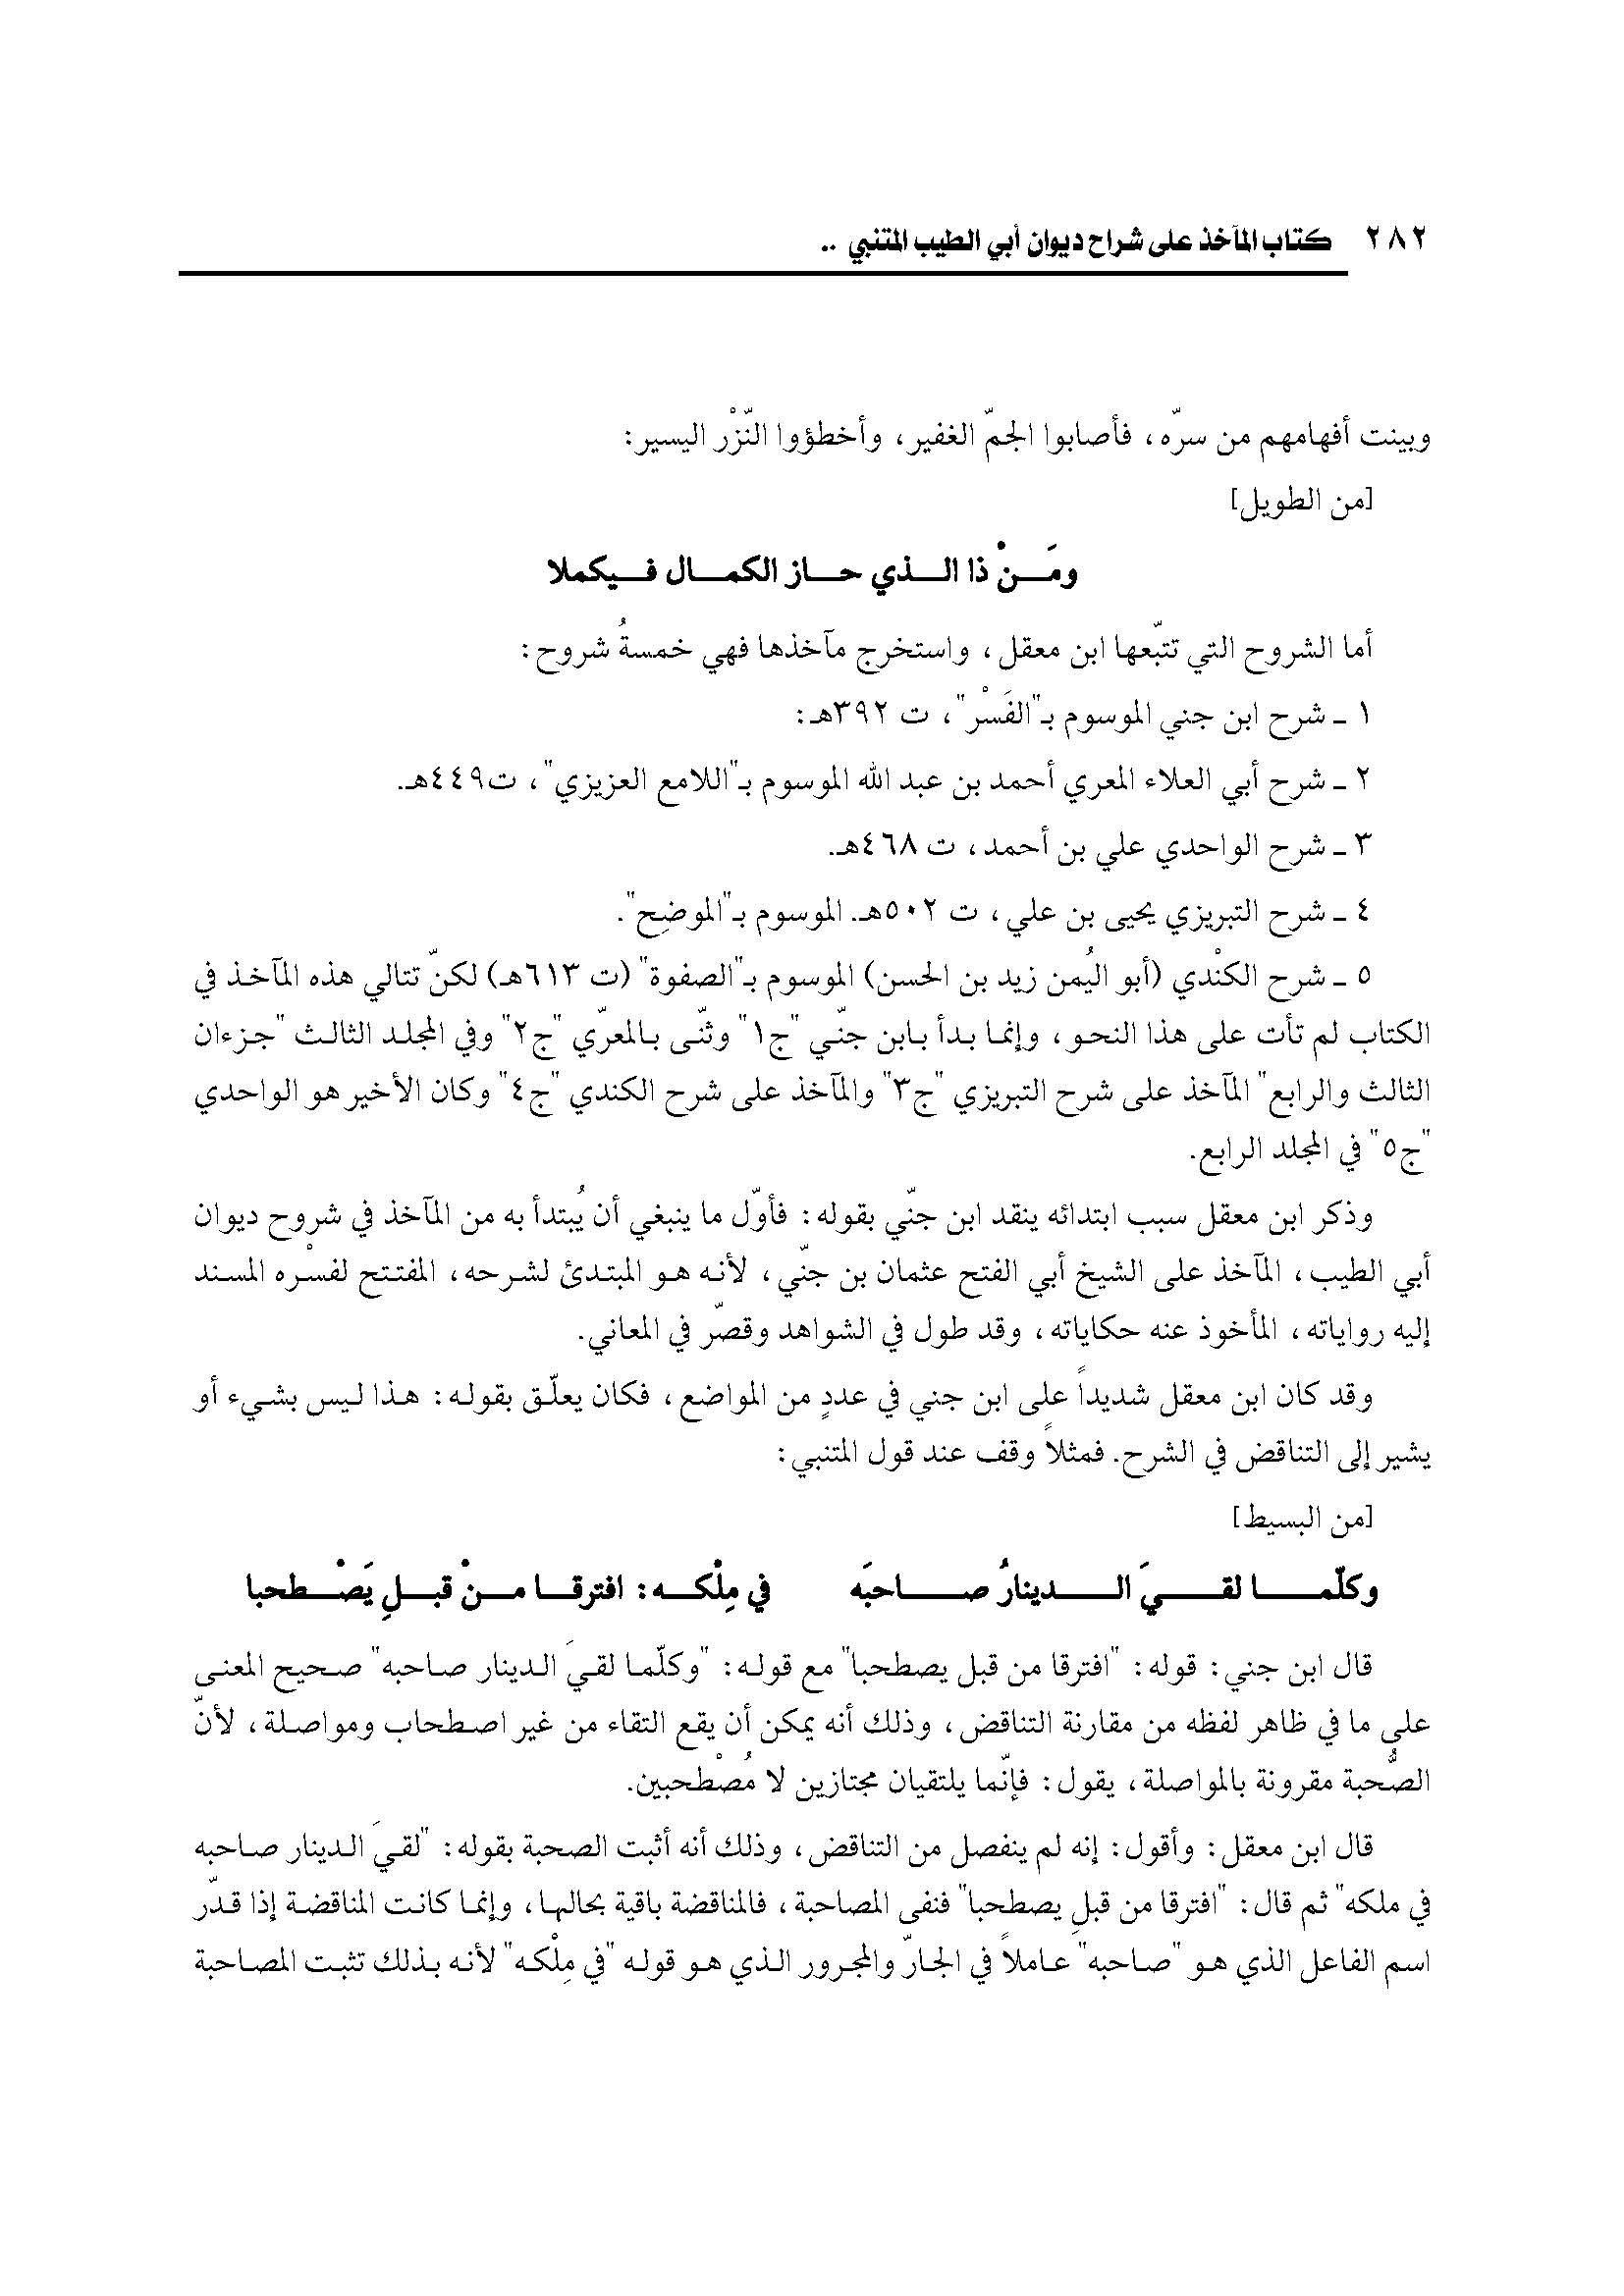 ٢٨٢ كتاب المآخذ على شراح ديوان أبي الطيب المتنبي ..
وبينت أفهامهم من سرّه، فأصابوا الجمّ الغفير، وأخطؤوا النّزْر اليسير:
[من الطويل]
ومَنْ ذا الذي حاز الكمال فيكملا
أما الشروح التي تتبّعها ابن معقل، واستخرج مآخذها فهي خمسةُ شروح:
١ ـ شرح ابن جني الموسوم بـ"الفَسْر"، ت ٣٩٢هـ:
٢ ـ شرح أبي العلاء المعري أحمد بن عبد الله الموسوم بـ"اللامع العزيزي"، ت٤٤٩هـ.
٣ ـ شرح الواحدي علي بن أحمد، ت ٤٦٨هـ.
٤ ـ شرح التبريزي يحيى بن علي، ت ٥٠٢هـ. الموسوم بـ"الموضِح".
٥ ـ شرح الكنْدي (أبو اليُمن زيد بن الحسن) الموسوم بـ"الصفوة" (ت ٦١٣هـ) لكنّ تتالي هذه المآخذ في
الكتاب لم تأت على هذا النحو، وإنما بدأ بابن جنّي "ج١" وثنّى بالمعرّي "ج٢" وفي المجلد الثالث "جزءان
الثالث والرابع" المآخذ على شرح التبريزي "ج٣" والمآخذ على شرح الكندي "ج٤" وكان الأخير هو الواحدي
"ج٥" في المجلد الرابع.
وذكر ابن معقل سبب ابتدائه ينقد ابن جنّي بقوله: فأوّل ما ينبغي أن يُبتدأ به من المآخذ في شروح ديوان
أبي الطيب، المآخذ على الشيخ أبي الفتح عثمان بن جنّي، لأنه هو المبتدئ لشرحه، المفتتح لفسْره المسند
إليه رواياته، المأخوذ عنه حكاياته، وقد طول في الشواهد وقصّر في المعاني.
وقد كان ابن معقل شديداً على ابن جني في عددٍ من المواضع، فكان يعلّق بقوله: هذا ليس بشيء أو
يشير إلى التناقض في الشرح. فمثلاً وقف عند قول المتنبي:
[من البسيط]
وكلّما لقيَ الدينارُ صاحبَه في مِلْكه: افترقا منْ قبلِ يَصْطحبا
قال ابن جني: قوله: "افترقا من قبل يصطحبا" مع قوله: "وكلّما لقيَ الدينار صاحبه" صحيح المعنى
على ما في ظاهر لفظه من مقارنة التناقض، وذلك أنه يمكن أن يقع التقاء من غير اصطحاب ومواصلة، لأنّ
الصُّحبة مقرونة بالمواصلة، يقول: فإنّما يلتقيان مجتازين لا مُصْطحبين.
قال ابن معقل: وأقول: إنه لم ينفصل من التناقض، وذلك أنه أثبت الصحبة بقوله: "لقيَ الدينار صاحبه
في ملكه" ثم قال: "افترقا من قبلِ يصطحبا" فنفى المصاحبة، فالمناقضة باقية بحالها، وإنما كانت المناقضة إذا قدّر
اسم الفاعل الذي هو "صاحبه" عاملاً في الجارّ والمجرور الذي هو قوله "في مِلْكه" لأنه بذلك تثبت المصاحبة